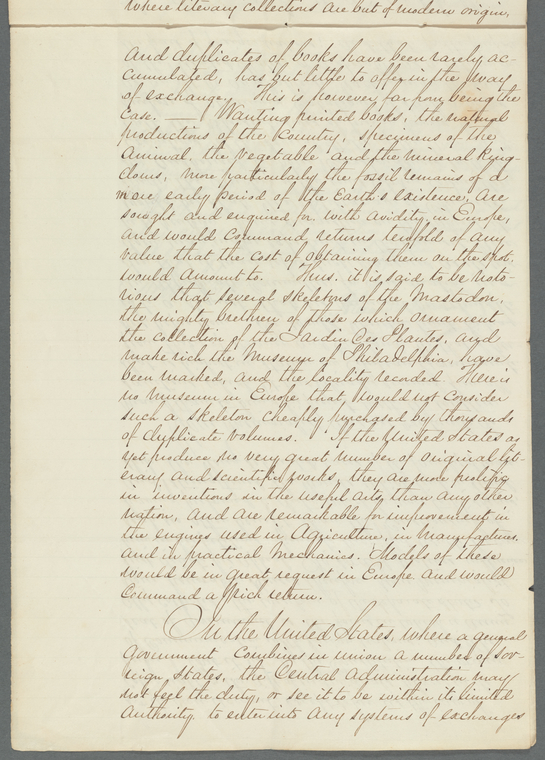 where literary collections are but of modern origin,
and duplicates of books have been rarely ac-
cumulated, has but little to offer in the way
of exchange. This is however far from being the
case. — Wanting printed books, the natural
productions of the Country, specimens of the
Animal, the vegetable and the mineral king-
doms, more particularly the fossil remains of a
more early period of the Earth's existence, are
sought and enquired for with avidity in Europe,
and would command returns tenfold of any
value that the cost of obtaining them on the spot
would amount to. Thus. it is said to be noto-
rious that several skeletons of the Mastodon,
the mighty brethren of those which ornament
the collection of the Jardin des Plantes, and
make rich the Museum of Philadelphia, have
been marked, and the locality recorded. There is
no museum in Europe that would not consider
such a skeleton cheaply purchased by thousands
of duplicate volumes. If the United States as
yet produce no very great number of original lit-
erary and scientific works, they are more prolific
in inventions in the useful arts, than any other
nation, and are remarkable for improvement in
the engines used in Agriculture, in Manufactures.
and in practical Mechanics. Models of these
would be in great request in Europe and would
Command a rich return.
In the United States, where a general
government combines in union a number of sov-
reign States, the Central Administration may
not feel the duty, or see it to be within its limited
authority to enter into any systems of exchanges